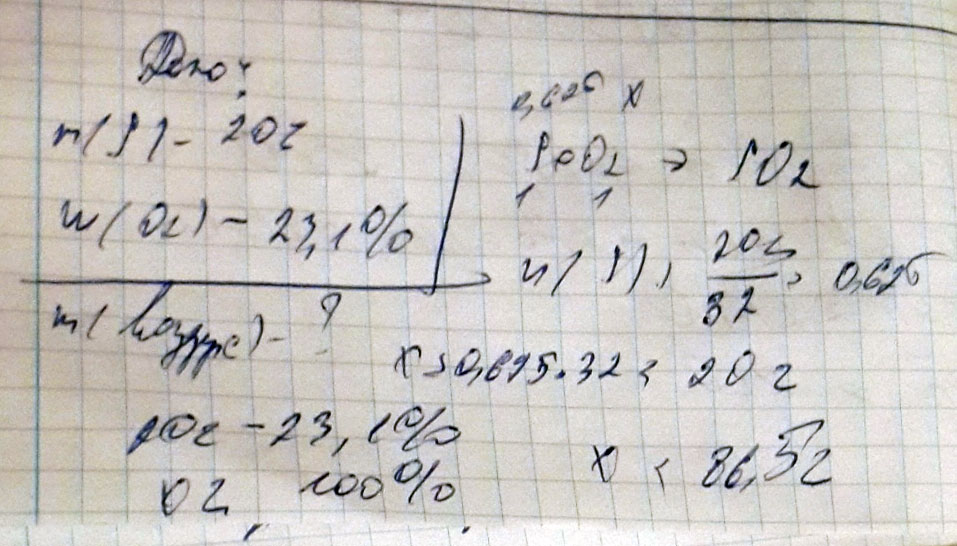 Дано:
m(S) - 20г
w(O2) - 23,1%
m(воздуха) - ?
0,625 x
S + O2 → SO2
1 1
n(S) = 20г / 32 = 0,625
x = 0,625 · 32 = 20г
20г - 23,1%
xг, 100%
x = 86,5г